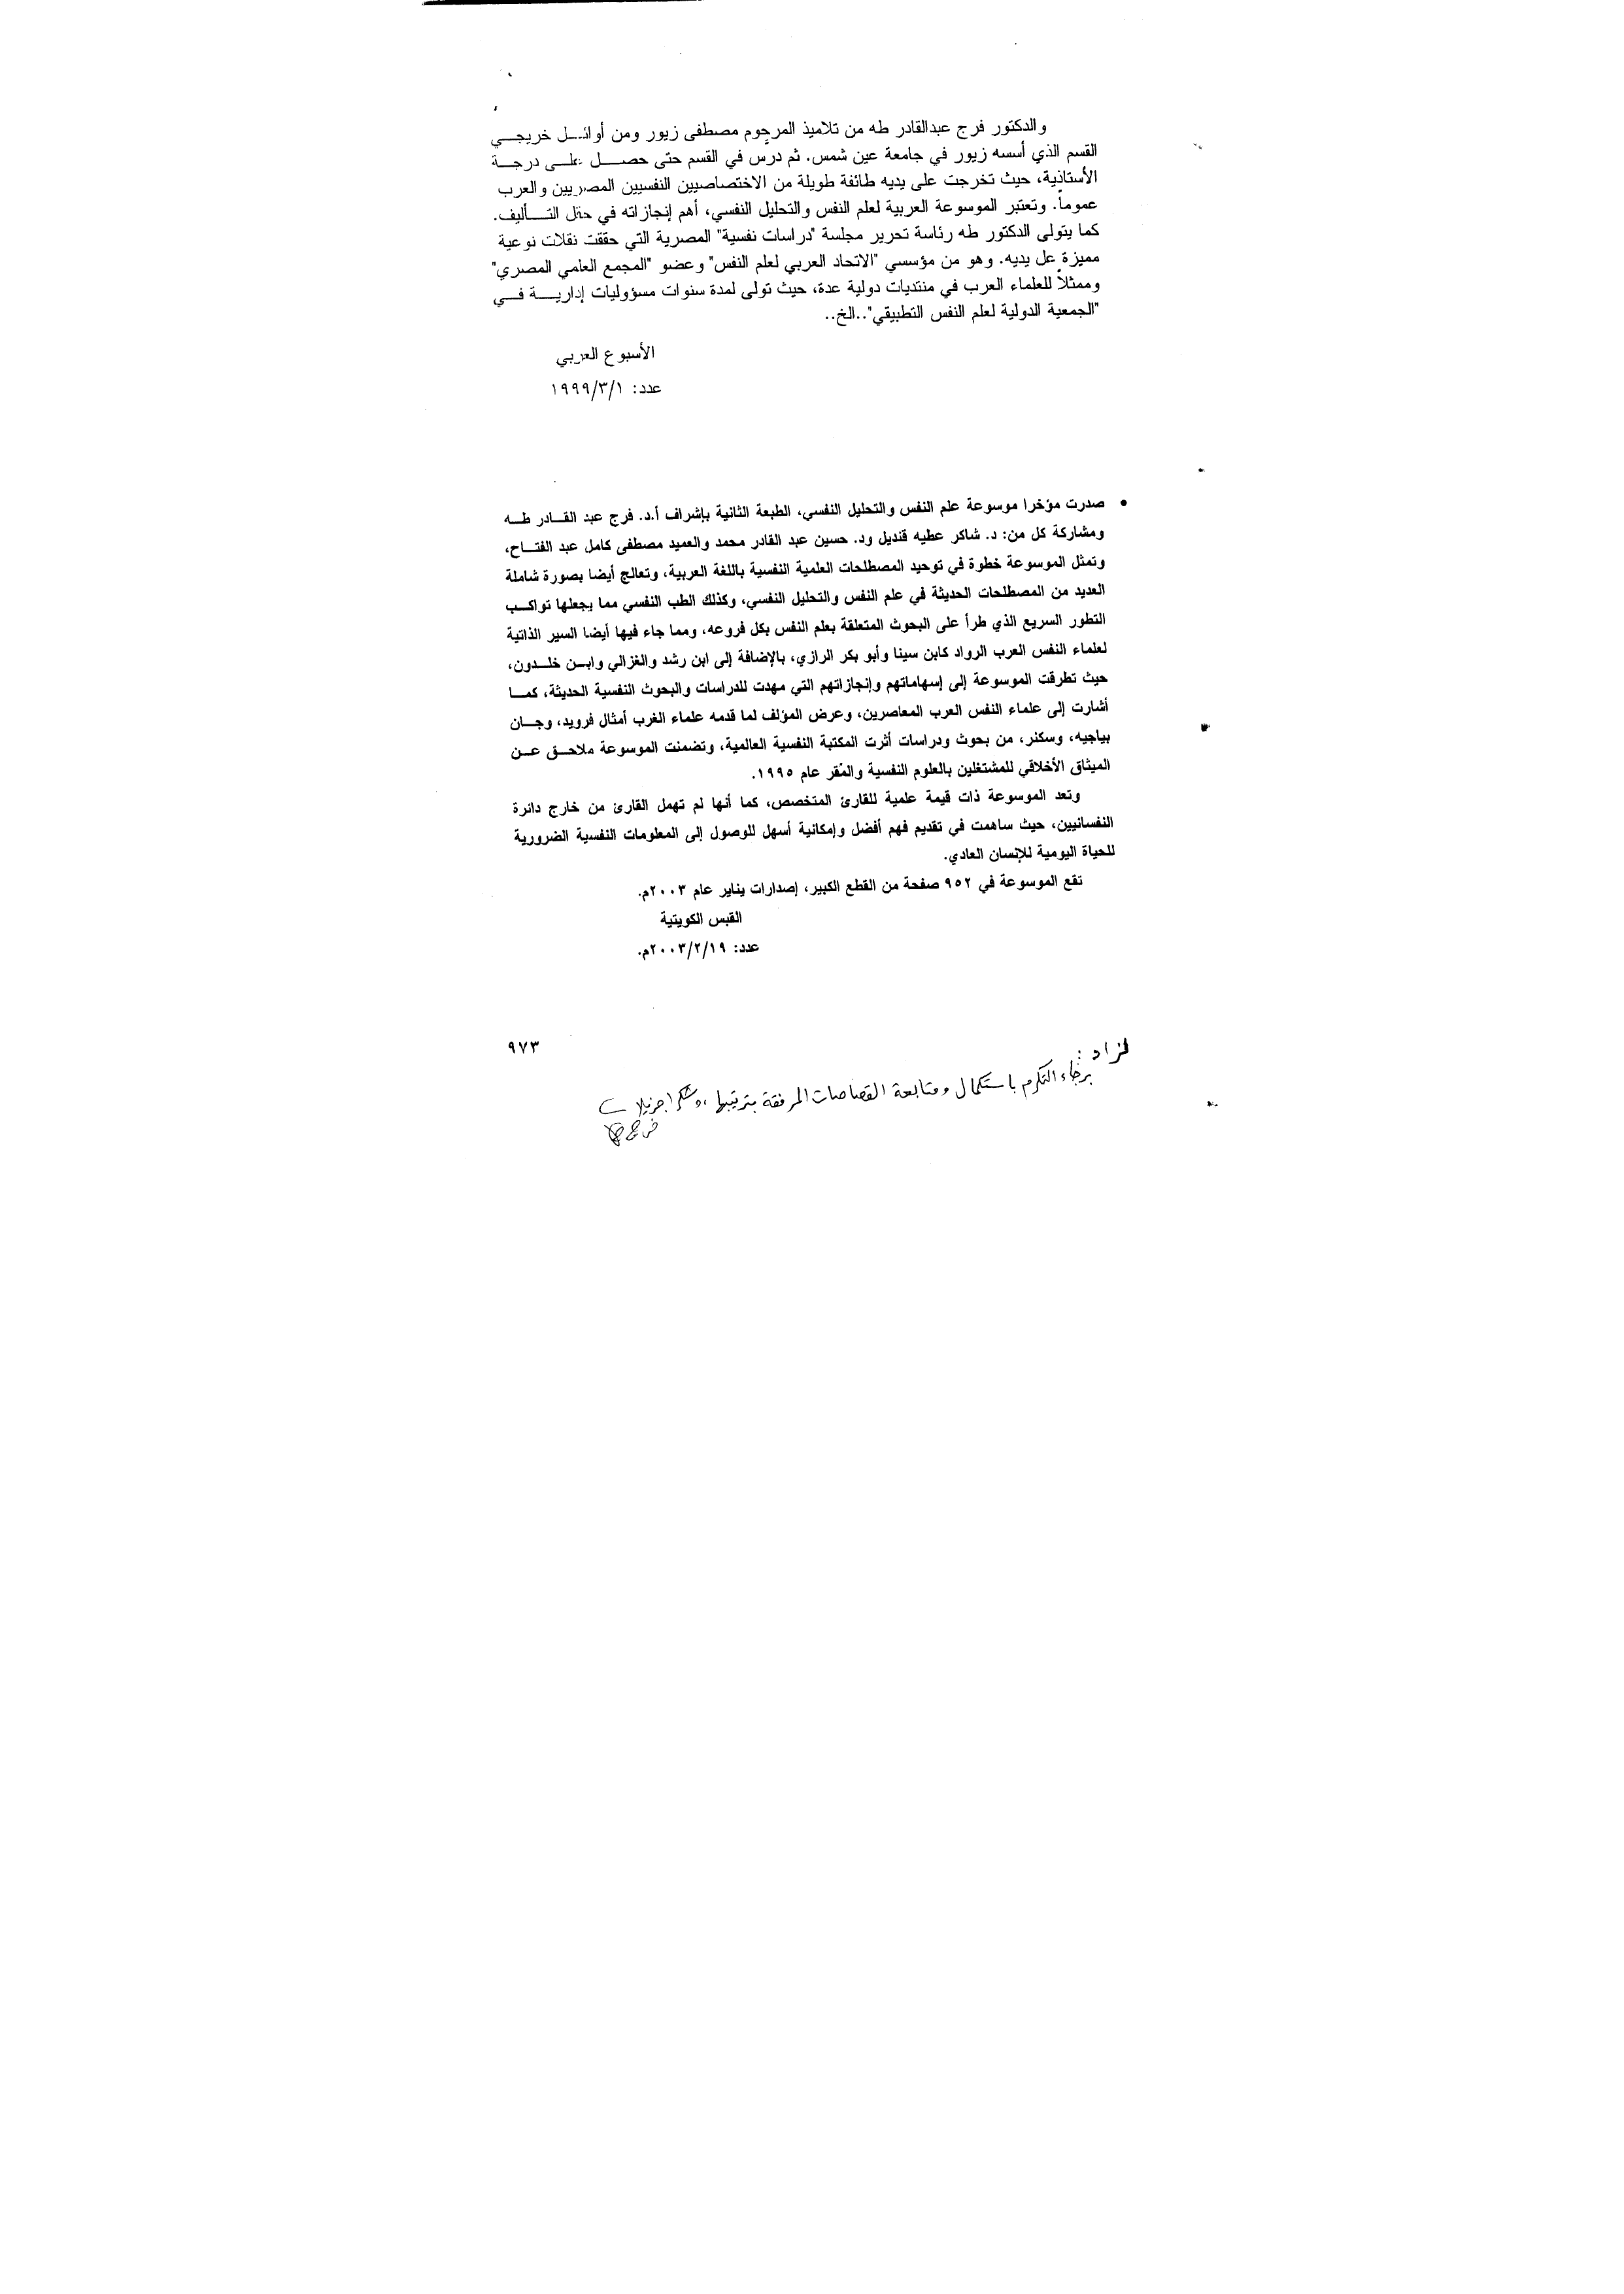 والدكتور فرج عبدالقادر طه من تلاميذ المرحوم مصطفى زيور ومن أوائل خريجي
القسم الذي أسسه زيور في جامعة عين شمس. ثم درس في القسم حتى حصل على درجة
الأستاذية، حيث تخرجت على يديه طائفة طويلة من الاختصاصيين النفسيين المصريين والعرب
عموماً. وتعتبر الموسوعة العربية لعلم النفس والتحليل النفسي، أهم إنجازاته في حقل التأليف.
كما يتولى الدكتور طه رئاسة تحرير مجلسة "دراسات نفسية" المصرية التي حققت نقلات نوعية
مميزة عل يديه. وهو من مؤسسي "الاتحاد العربي لعلم النفس" وعضو "المجمع العامي المصري"
وممثلاً للعلماء العرب في منتديات دولية عدة، حيث تولى لمدة سنوات مسؤوليات إدارية في
"الجمعية الدولية لعلم النفس التطبيقي"..الخ..
الأسبوع العربي
عدد: ١٩٩٩/٣/١
• صدرت مؤخرا موسوعة علم النفس والتحليل النفسي، الطبعة الثانية بإشراف أ.د. فرج عبد القادر طه
ومشاركة كل من: د. شاكر عطيه قنديل ود. حسين عبد القادر محمد والعميد مصطفى كامل عبد الفتاح،
وتمثل الموسوعة خطوة في توحيد المصطلحات العلمية النفسية باللغة العربية، وتعالج أيضا بصورة شاملة
العديد من المصطلحات الحديثة في علم النفس والتحليل النفسي، وكذلك الطب النفسي مما يجعلها تواكب
التطور السريع الذي طرأ على البحوث المتعلقة بعلم النفس بكل فروعه، ومما جاء فيها أيضا السير الذاتية
لعلماء النفس العرب الرواد كابن سينا وأبو بكر الرازي، بالإضافة إلى ابن رشد والغزالي وابن خلدون،
حيث تطرقت الموسوعة إلى إسهاماتهم وإنجازاتهم التي مهدت للدراسات والبحوث النفسية الحديثة، كما
أشارت إلى علماء النفس العرب المعاصرين، وعرض المؤلف لما قدمه علماء الغرب أمثال فرويد، وجان
بياجيه، وسكنر، من بحوث ودراسات أثرت المكتبة النفسية العالمية، وتضمنت الموسوعة ملاحق عن
الميثاق الأخلاقي للمشتغلين بالعلوم النفسية والمُقر عام ١٩٩٥.
وتعد الموسوعة ذات قيمة علمية للقارئ المتخصص، كما أنها لم تهمل القارئ من خارج دائرة
النفسانيين، حيث ساهمت في تقديم فهم أفضل وإمكانية أسهل للوصول إلى المعلومات النفسية الضرورية
للحياة اليومية للإنسان العادي.
تقع الموسوعة في ٩٥٢ صفحة من القطع الكبير، إصدارات يناير عام ٢٠٠٣م.
القبس الكويتية
عدد: ٢٠٠٣/٢/١٩م.
٩٧٣
برجاء التكرم باستكمال ومتابعة القصاصات المرفقة بترتيبها، وشكرا جزيلا
فرج طه